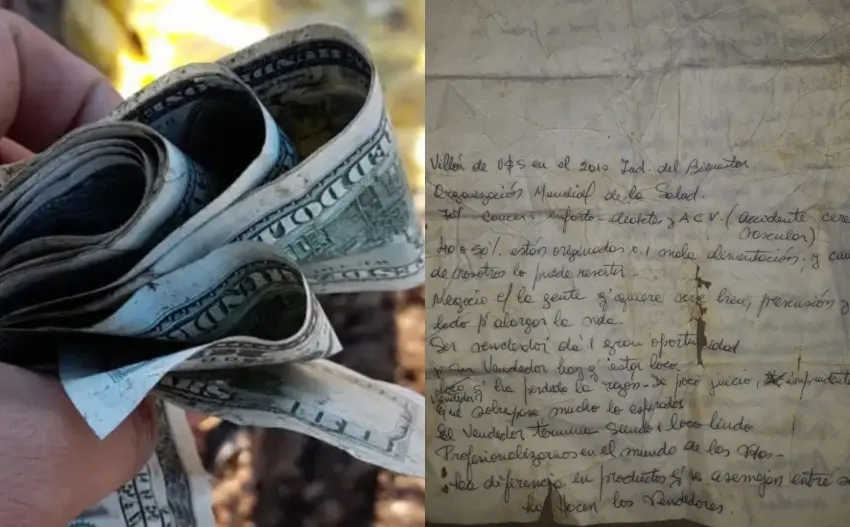 HUNDRED DOLL
UNDRED
Villón de U$S en el 2010 Ind. del Bienestar
Organización Mundial de la Salud.
70% cancer - infarto - diabete y A C V. (accidente cere
vascular)
40 a 50% están originados x 1 mala alimentación. y
de nosotros lo puede revertir -
Negocio c/ la gente q' quiere bien,
p' alargar la vida.
Ser vendedor dá 1 gran oportunidad
Ser Vendedor hay q' estar loco.
Loco q' ha perdido la razón - De poco juicio, imprudente
Vendedor?
Que sobrepasa mucho lo esperado
El Vendedor termina siendo 1 loco lindo
Profesionalizarnos en el mundo de las Vtas -
La diferencia en productos q' se asemejan entre
la hacen los Vendedores.